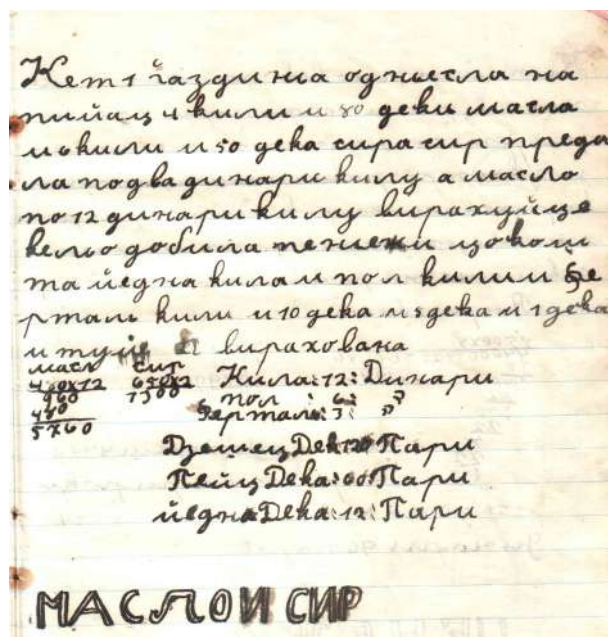 Кет 1 ґаздиня однєсла на
пийац 4 кили и 80 деки масла
и 6 кили и 50 дека сира сир преда
ла по два динари килу а масло
по 12 динари килу вирахуйце
кельо добила пенєжи цо кош
та йедна кила и пол кили и фе
рталь кили и 10 дека и 5 дека и 1 дека
и туй вирахована
масл сир
480х12 650х2 Кила:12: Динари
960 1300 пол :6:
480 Ферталь:3: "
5760
Дзешец Дека:120 Пари
Пейц Дека:60:Пари
йедна Дека:12:Пари
МАСЛО И СИР